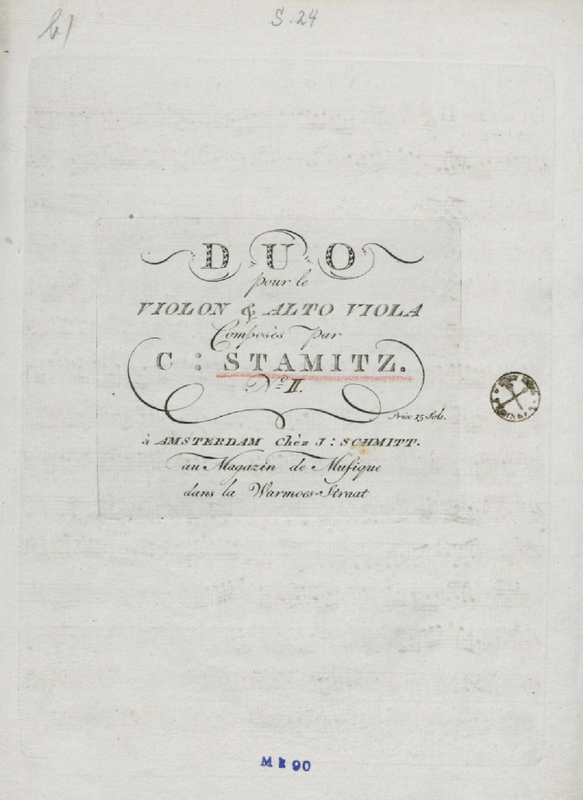 b)
S. 24
DUO
pour le
VIOLON & ALTO VIOLA
Composés Par
C : STAMITZ.
No. II.
Prix 15 Sols.
à AMSTERDAM Chèz J : SCHMITT.
au Magazin de Musique
dans la Warmoes-Straat
M 2 90